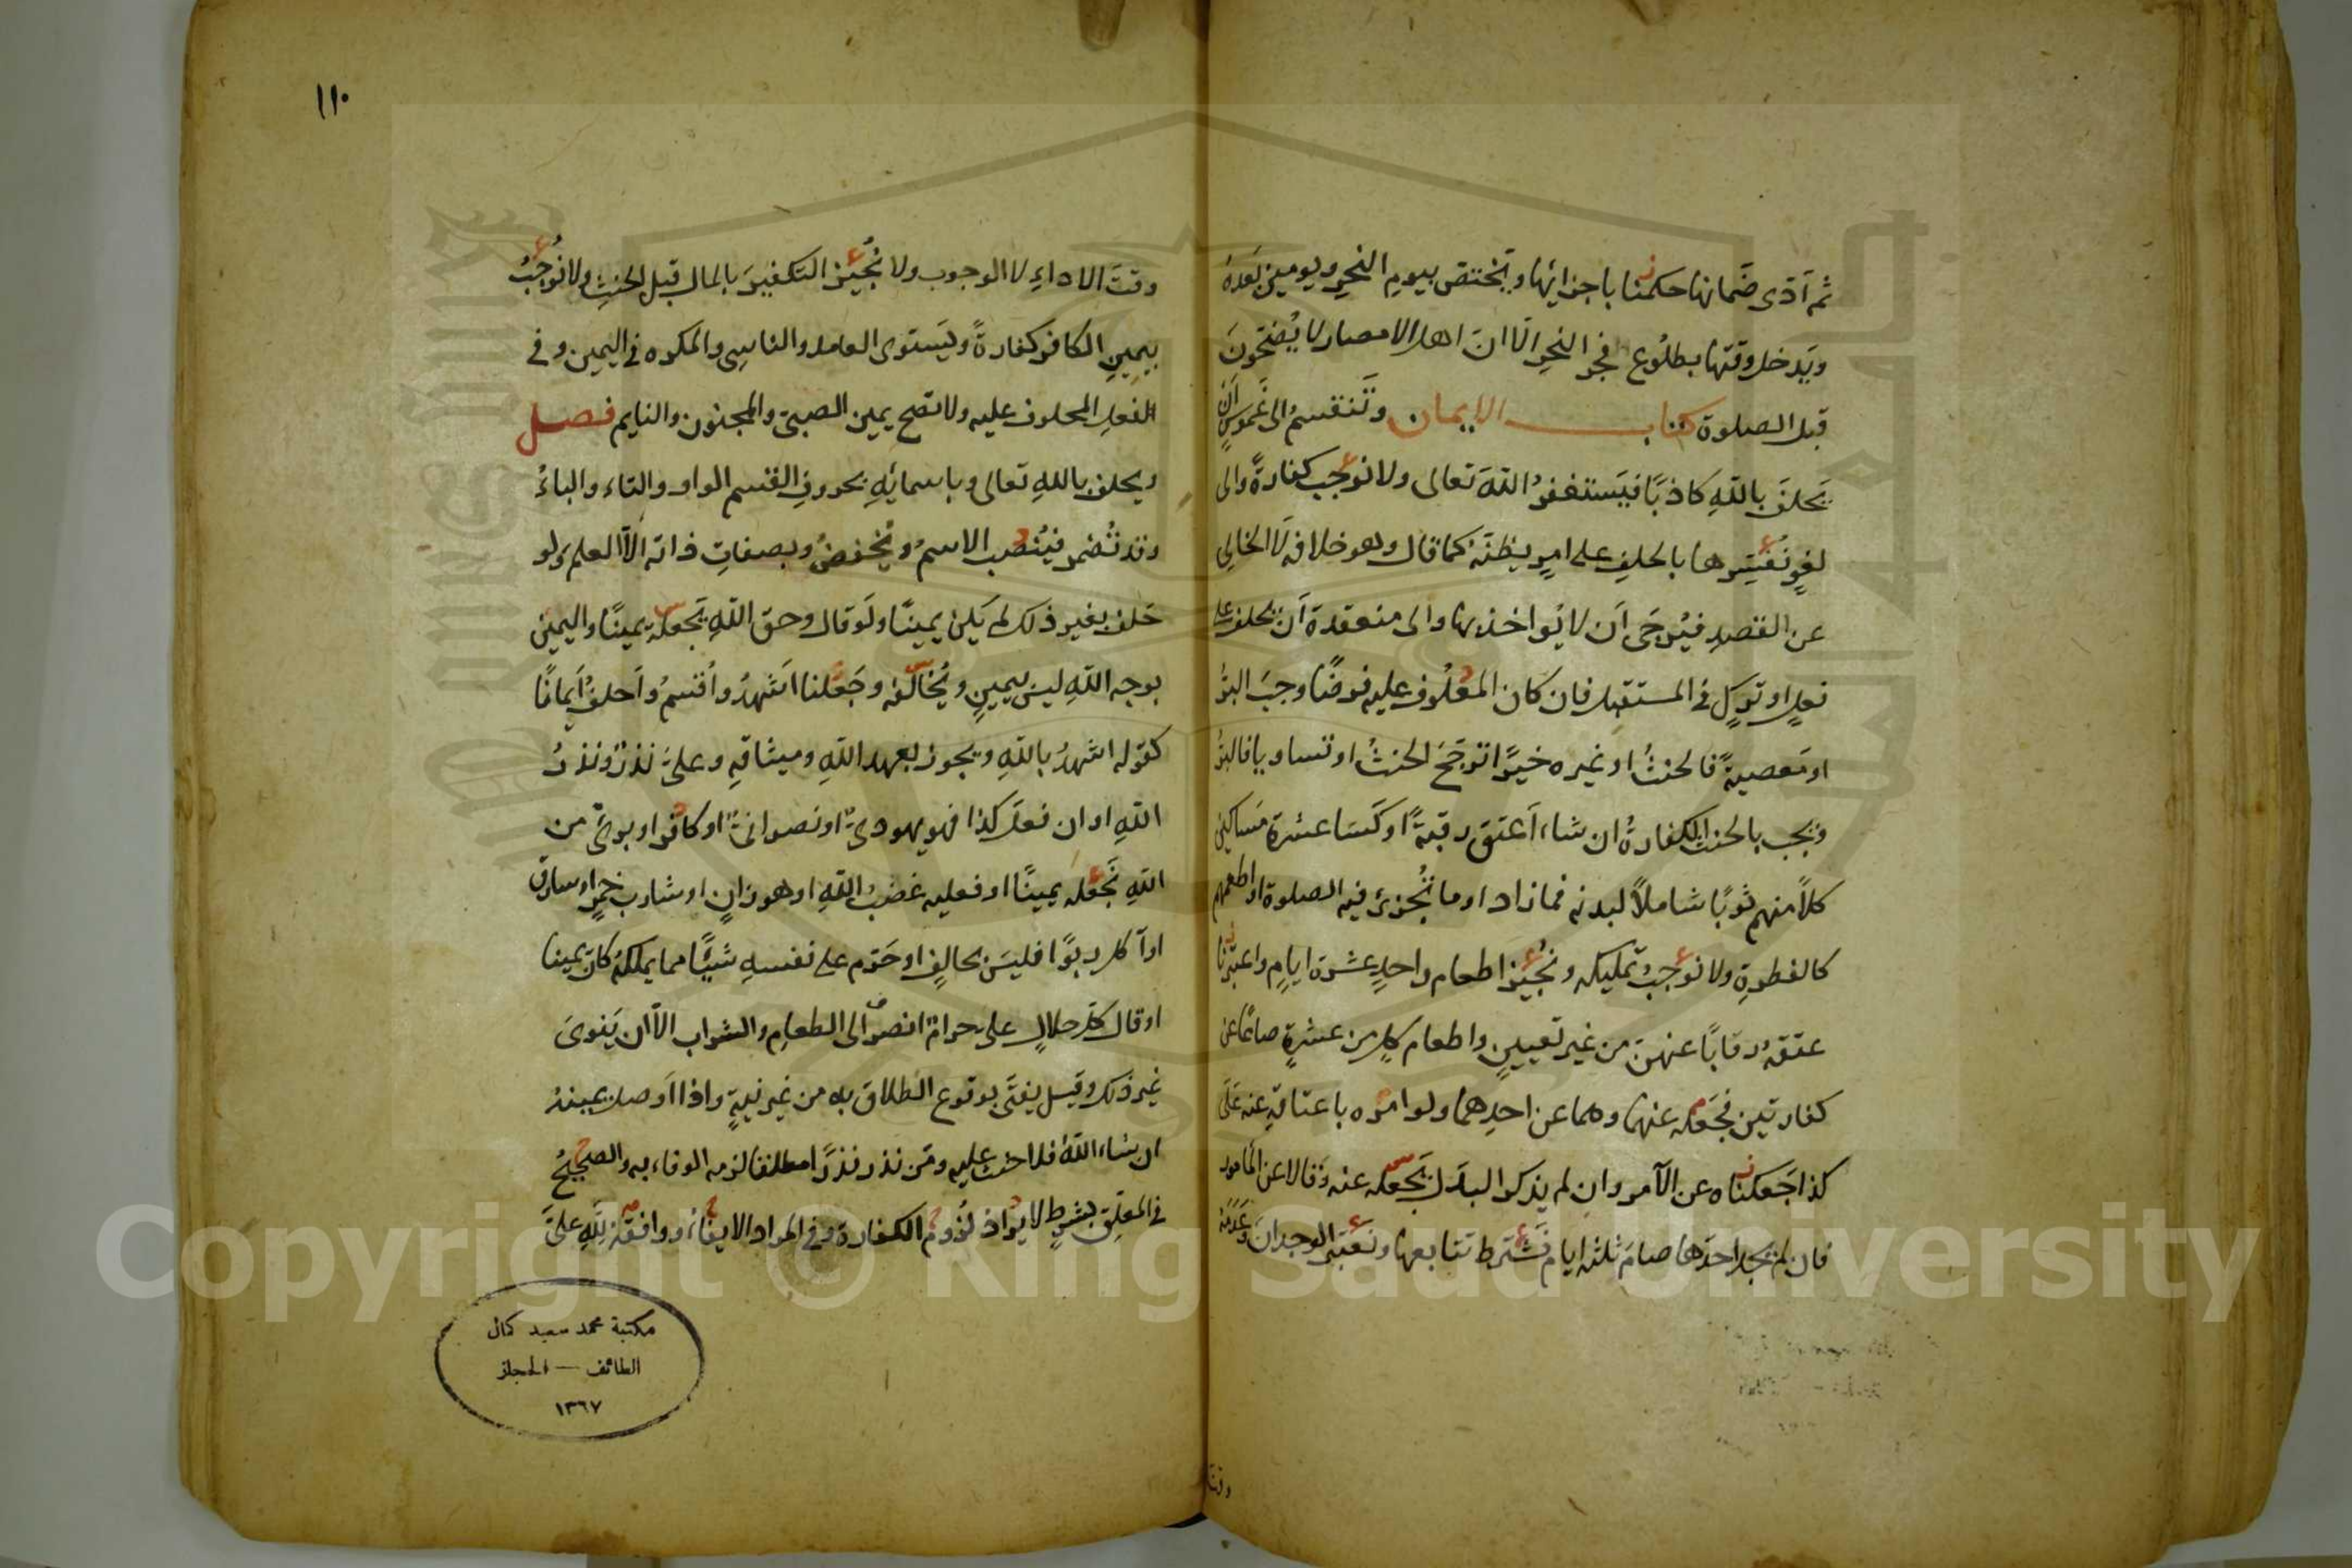 ثم أدى ضمانها حكمنا باجزائها ويختص بيوم النحر ويومين بعده
ويدخل وقتها بطلوع فجر النحر الا ان اهل الامصار لا يضحون
قبل الصلوة كتاب الايمان وتنقسم الى غموس ان
يحلف بالله كاذبا فيستغفر الله تعالى ولا نوجب كفارة والى
لغو نفسرها بالحلف على امر يظنه كما قال وهو خلافه لا الخالى
عن القصد فيرجى ان لا يواخذ بها والى منعقدة ان يحلف على
فعل او ترك في المستقبل فان كان المحلوف عليه فرضا وجب البر
او معصية فالحنث او غيره خيرا ترجح الحنث او تساويا فالبر
ويجب بالحنث الكفارة ان شاء اعتق رقبة او كسا عشرة مساكين
كلا منهم ثوبا شاملا لبدنه فما زاد او ما تجزئ فيه الصلوة او اطعمهم
كالفطرة ولا نوجب تمليكه ونجيز اطعام واحد عشرة ايام واعتبرنا
عتقه رقابا عنهن من غير تعيين واطعام كل من عشرة صاعا عن
كفارتين نجعله عنهما وهما عن احدهما ولو امره باعتاقه عنه على
كذا جعلناه عن الآمر وان لم يذكر البدل يجعله عنه وقالا عن المامور
فان لم يجد احدها صام ثلثة ايام نشترط تتابعها ونعتبر الوجدان وعدمه
وقت
١١٠
وقت الاداء لا الوجوب ولا نجيز التكفير بالمال قبل الحنث ولا نوجب
بيمين الكافر كفارة ويستوى العامد والناسى والمكره في اليمين وفي
الفعل المحلوف عليه ولا تصح يمين الصبي والمجنون والنايم فصل
ويحلف بالله تعالى وباسمائه بحروف القسم الواو والتاء والباء
وقد تضمر فينصب الاسم ويخفض وبصفات ذاته الا العلم ولو
حلف بغير ذلك لم يكن يمينا ولو قال وحق الله يجعله يمينا واليمين
بوجه الله ليس بيمين ويخالفه وجعلنا اشهد واقسم واحلف ايمانا
كقوله اشهد بالله ويجوز بعهد الله وميثاقه وعلى نذر ونذر
الله او ان فعل كذا فهو يهودى او نصرانى او كافر او برئ من
الله نجعله يمينا او فعليه غضب الله او هو زان او شارب خمر او سارق
او آكل ربوا فليس بحالف او حرم على نفسه شيئا مما يملكه كان يمينا
او قال كل حلال على حرام انصرف الى الطعام والشراب الا ان ينوى
غير ذلك وقيل يفتى بوقوع الطلاق به من غير نية واذا اوصل بيمينه
ان شاء الله فلا حنث عليه ومن نذر نذرا مطلقا لزمه الوفاء به والصحيح
في المعلق بشرط لا يراد لزوم الكفارة وفي المراد الايفاء ووافقه لله على
مكتبة محمد سعيد كمال
الطائف — الحجاز
١٣٦٧
Copyright © King Saud University